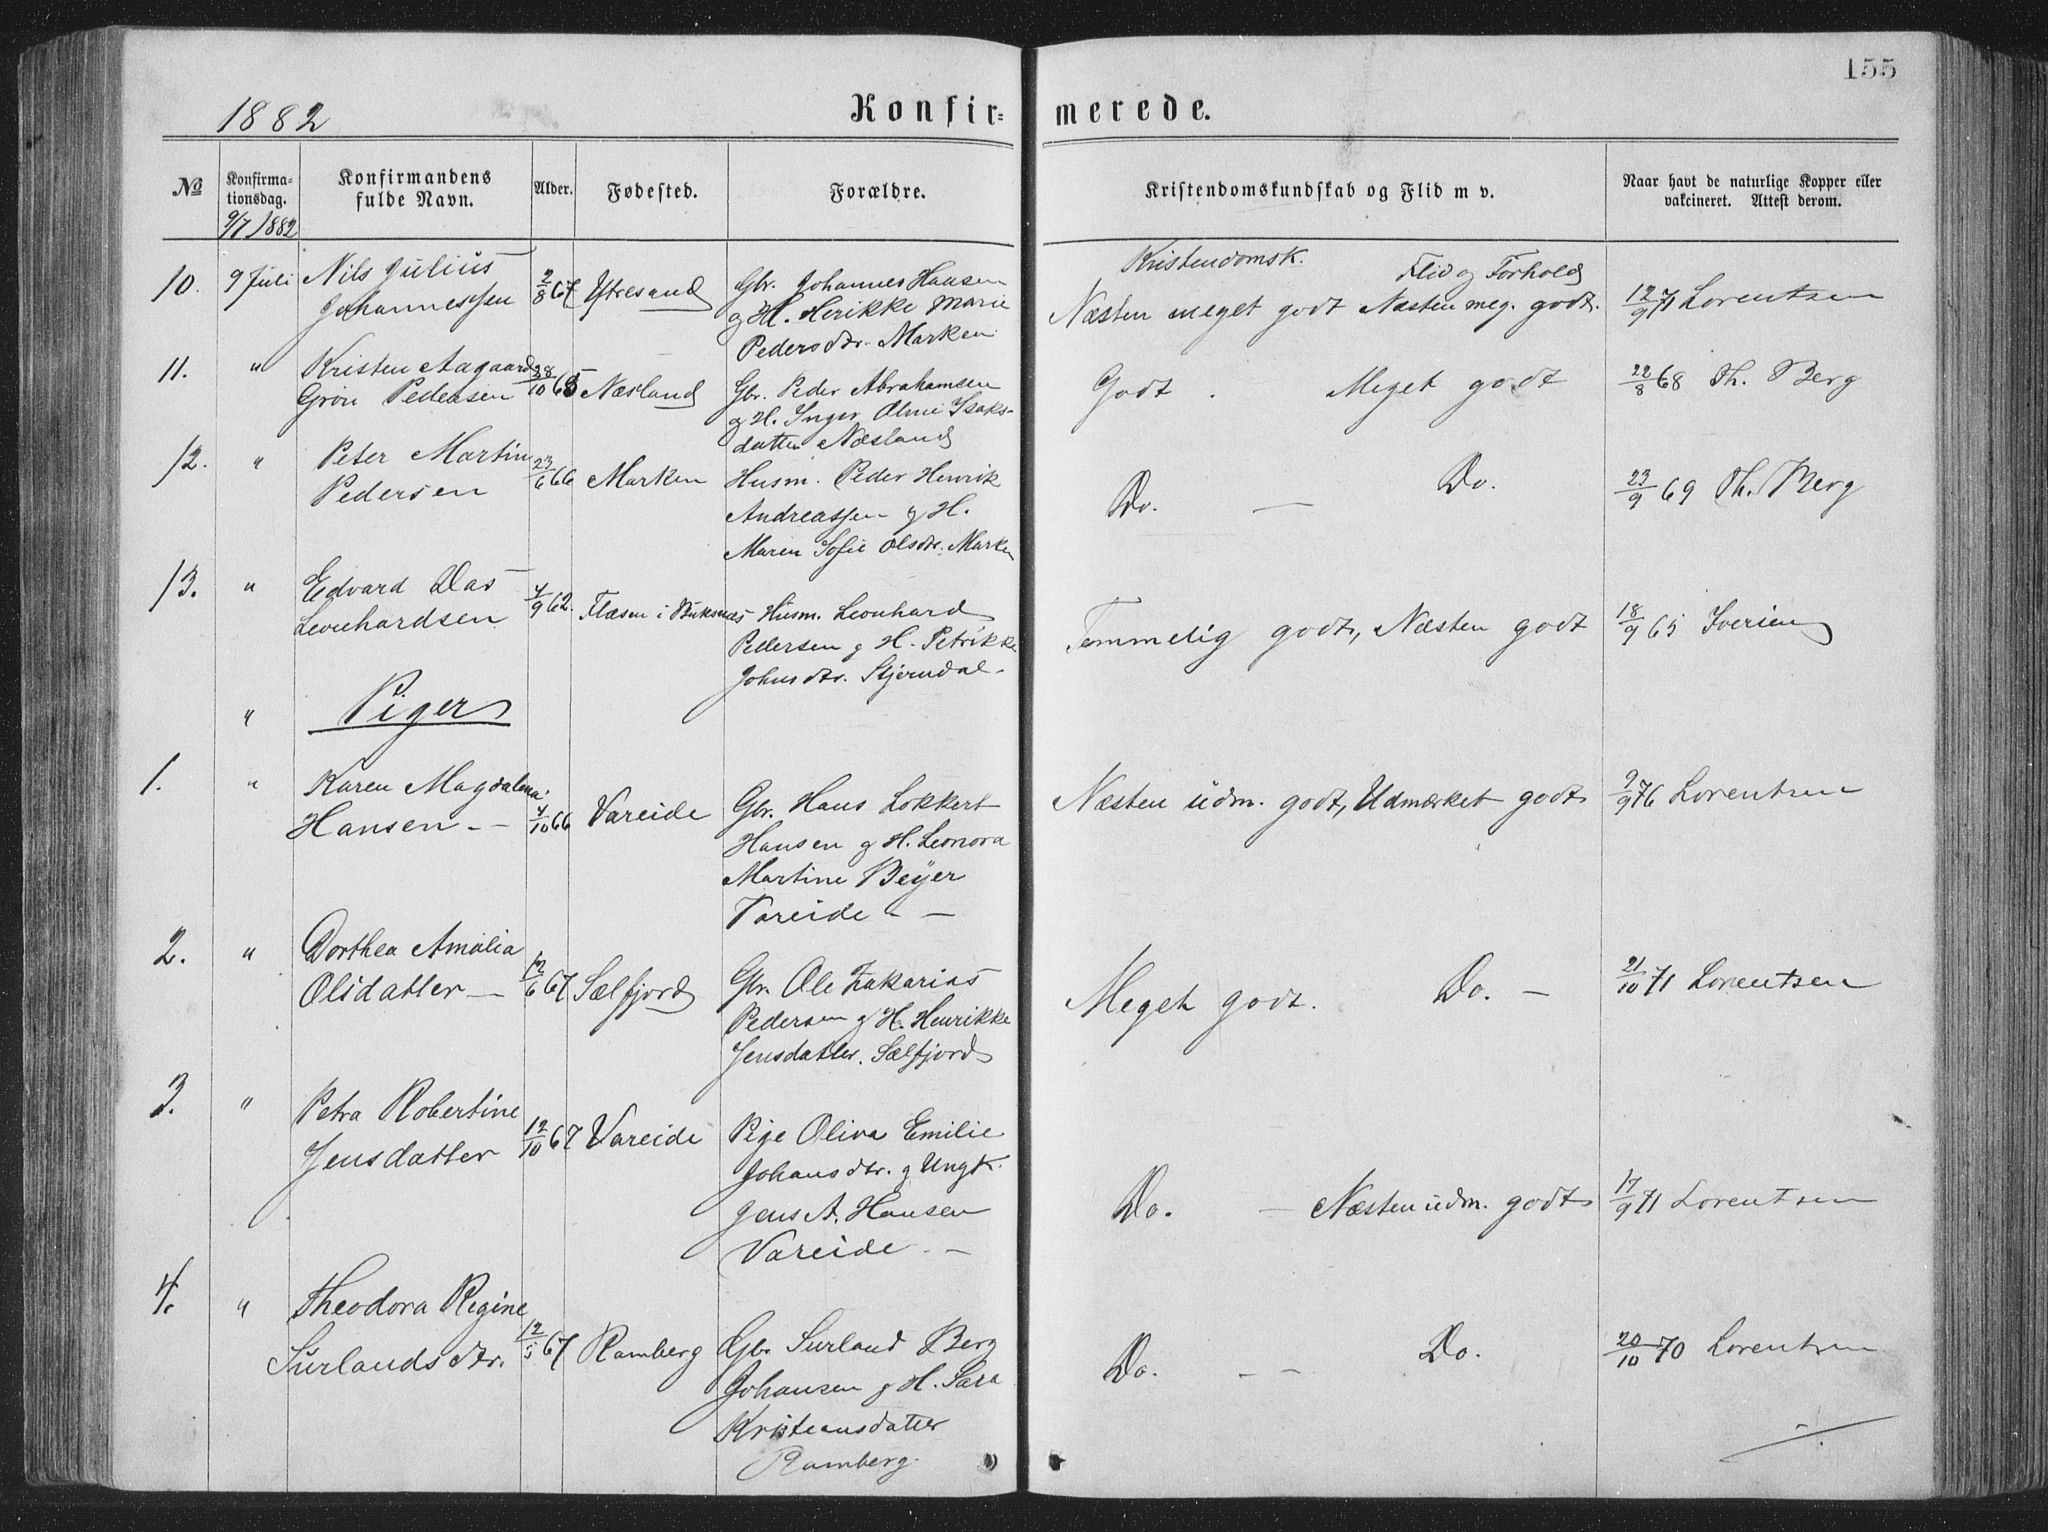 155
1882
Konfir-merede.
No
Konfirma-
tionsdag.
9/7 1882
Konfirmandens
fulde Navn.
Alder.
Fødested.
Forældre.
Kristendomskundskab og Flid m v.
Naar havt de naturlige Kopper eller
vakcineret. Attest derom.
Kristendomsk. Flid og Forhold
10. 9 Juli Nils Julius
Johannessen 2/8 67 Ytresand
Gbr. Johannes Hansen
og H. Henrikke Marie
Pedersdtr. Marken
Næsten meget godt Næsten meg. godt. 12/9 71 Lorentsen
11. " Kristen Aagaard
Grøn Pedersen 28/10 65 Næsland
Gbr. Peder Abrahamsen
og H. Inger Oline Isaks-
datter Næsland
Godt. Meget godt 22/8 68 Th. Berg
12. " Peter Martin
Pedersen 23/6 66 Marken
Husm. Peder Henrik
Andreassen og H.
Maren Sofie Olsdtr. Marken
Do. — Do. 23/9 69 Th. Berg
13. " Edvard Das
Leonhardsen 4/9 62. Flæsen i Buksnæs
Husm. Leonhard
Pedersen og H. Petrikke
Johnsdtr. Stjerndal -
Temmelig godt, Næsten godt 18/9 65 Iversen
" Piger
1. " Karen Magdalena
Hansen - — 4/10 66 Vareide
Gbr. Hans Lokkert
Hansen og H. Leonora
Martine Beyer
Vareide - —
Næsten udm. godt, Udmærket godt 9/9 76 Lorentsen
2. " Dorthea Amalia
Olsdatter — 12/6 67 Sælfjord
Gbr. Ole Zakarias
Pedersen og H. Henrikke
Jensdatter. Sælfjord
Meget godt. Do. — 21/10 71 Lorentsen
3. " Petra Robertine
Jensdatter 12/10 67 Vareide
Pige Oliva Emilie
Johansdtr. og Ungk.
Jens A. Hansen
Vareide - —
Do. — Næsten udm. godt 17/9 71 Lorentsen
4. " Theodora Regine
Surlandsdtr. 12/5 67 Ramberg
Gbr. Surland Berg
Johansen og H. Sara
Kristeansdatter
Ramberg.
Do. - — Do. 20/10 70 Lorentsen